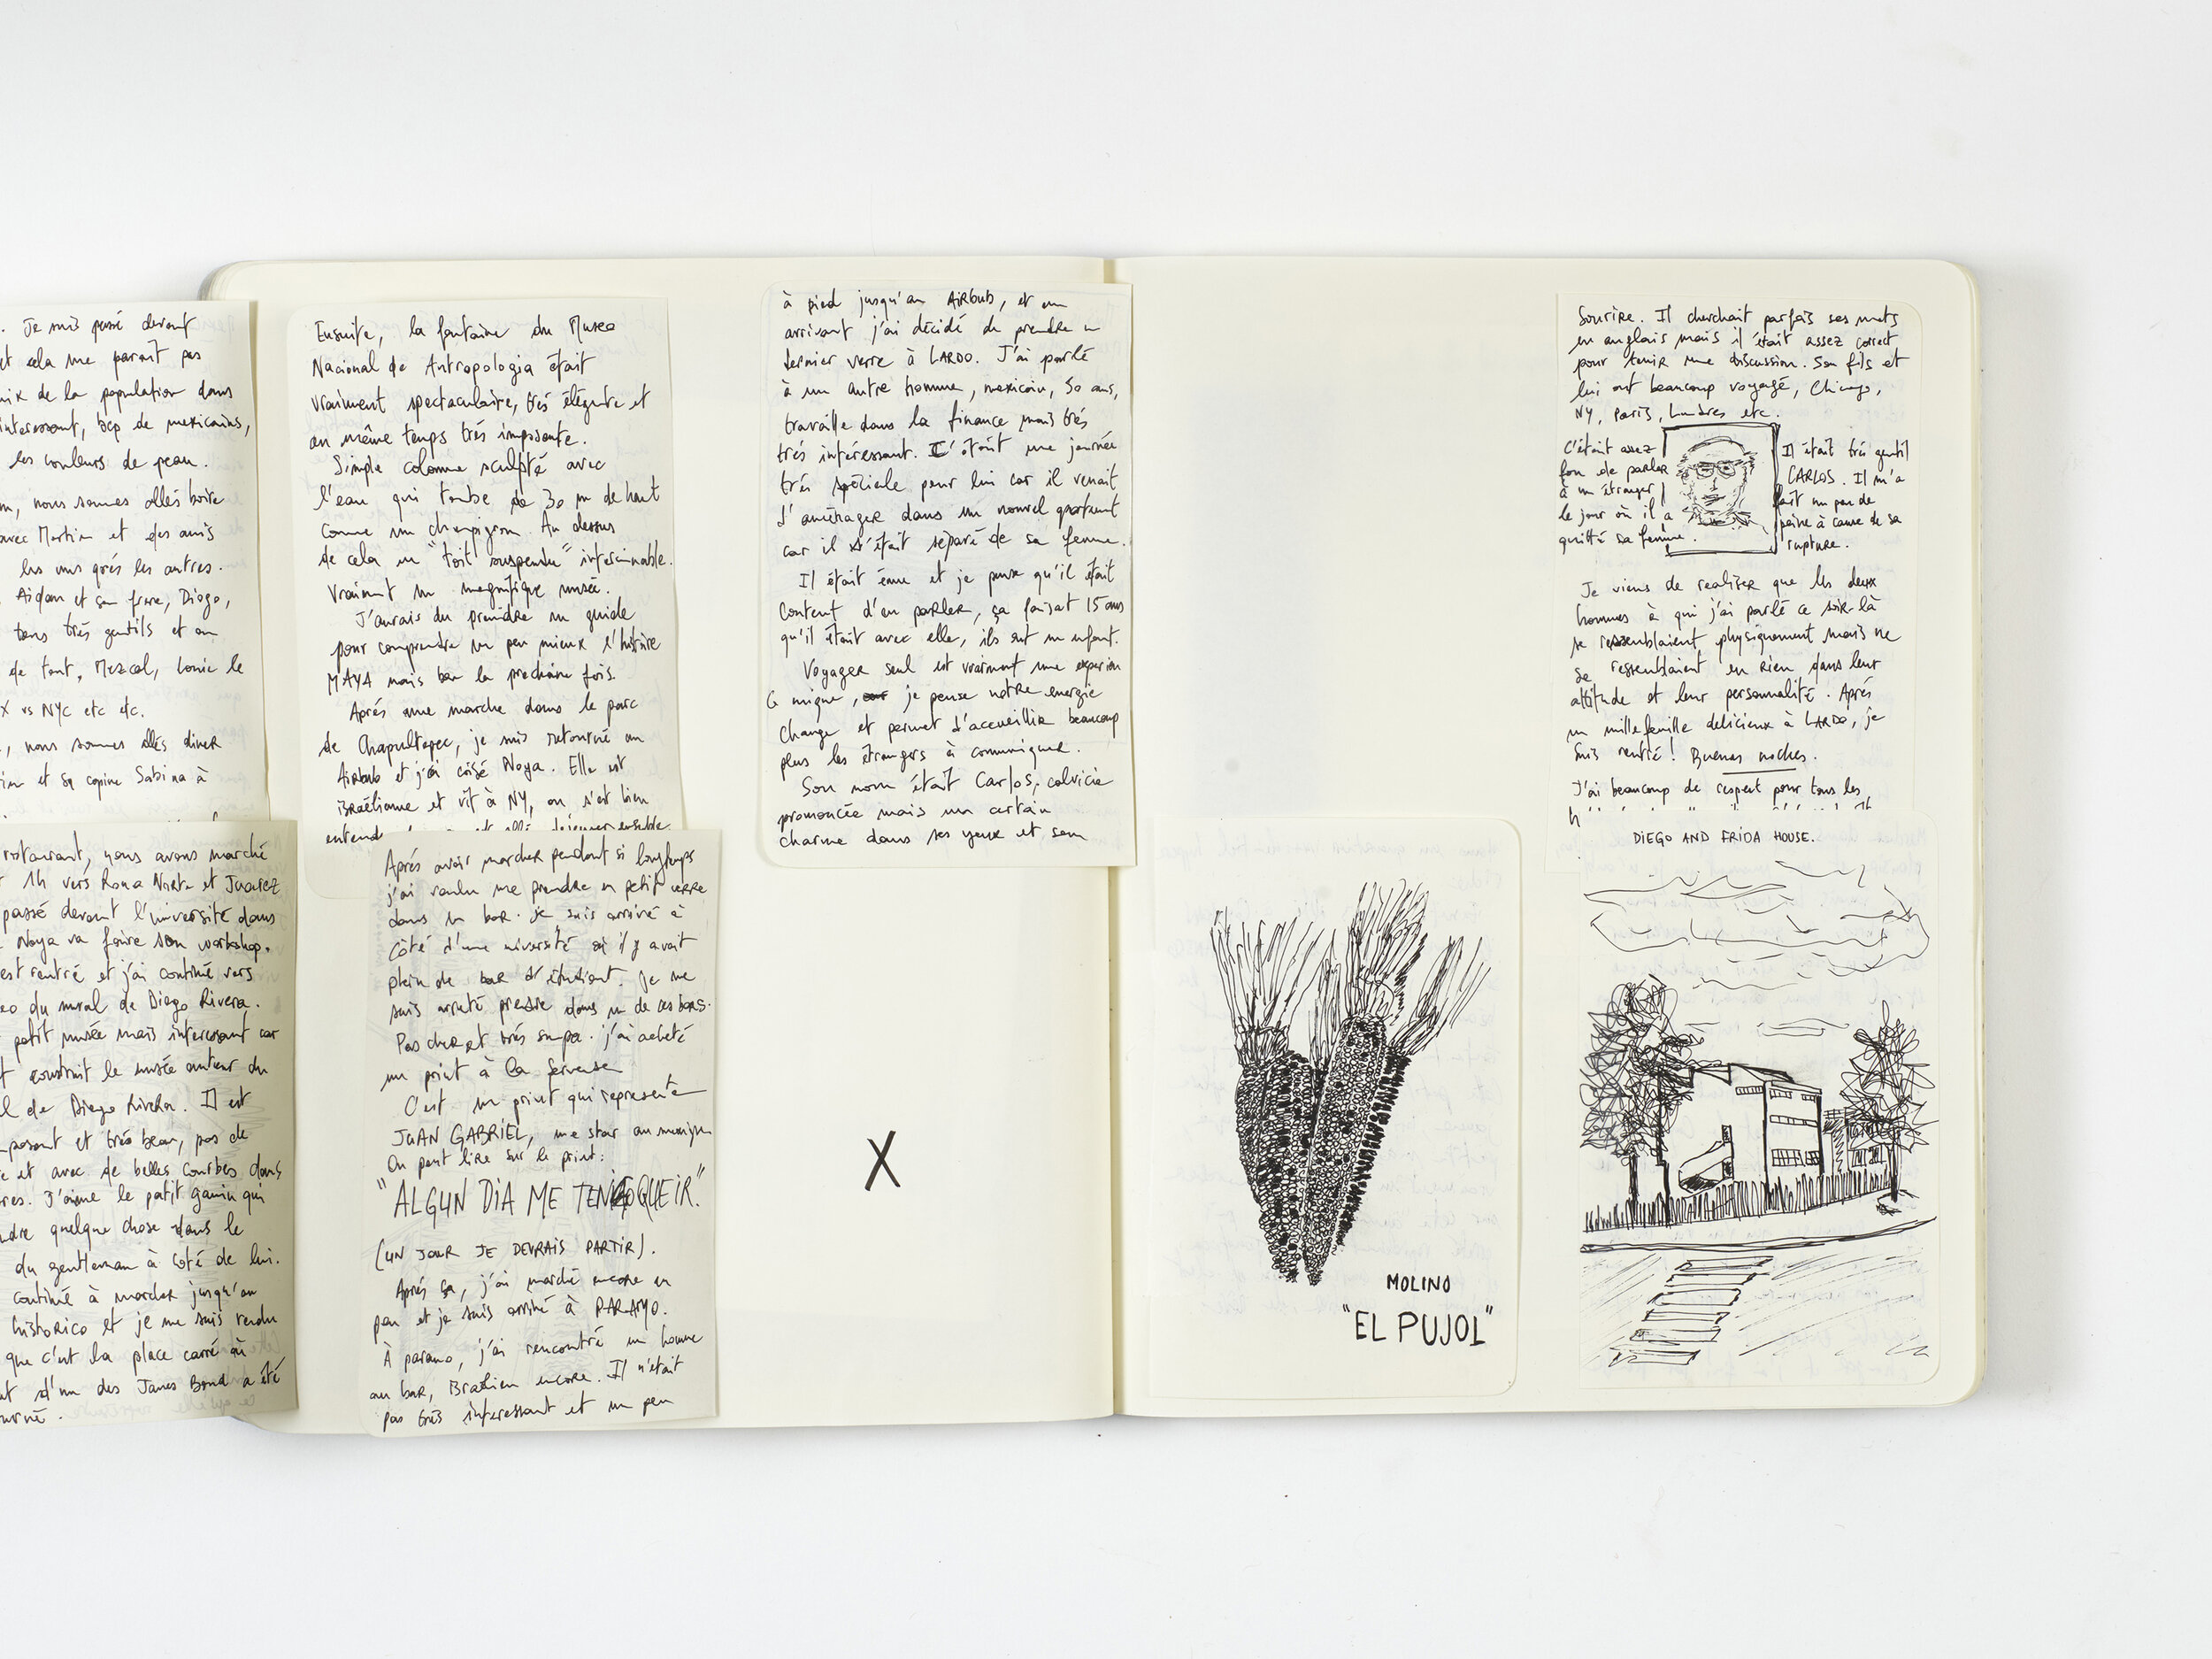 . Je suis passé devant
et cela me parait pas
mix de la population dans
interessant, bcp de mexicains,
les couleurs de peau.
nous sommes allés boire
avec Martin et des amis
les uns après les autres.
Aidan et son frère, Diego,
tous très gentils et on
de tout, Mezcal, Louis le
X vs NYC etc etc.
, nous sommes allés diner
et sa copine Sabina à
restaurant, nous avons marché
1h vers Roma Norte et Juarez
passé devant l'université dans
Noya va faire son workshop.
est rentré et j'ai continué vers
du mural de Diego Rivera.
petit musée mais interessant car
construit le musée autour du
de Diego Rivera. Il est
et très beau, pas de
et avec de belles courbes dans
J'aime le petit gamin qui
quelque chose dans le
du gentleman à coté de lui.
continué à marcher jusqu'au
historico et je me suis rendu
que c'est la place carré où
d'un des James Bond a été
Ensuite, la fontaine du Museo
Nacional de Antropologia était
vraiment spectaculaire, très élégante et
en même temps très imposante.
Simple colonne sculpté avec
l'eau qui tombe de 30 m de haut
comme un champignon. Au dessus
de cela un "toit suspendu" interminable.
Vraiment un magnifique musée.
J'aurais du prendre un guide
pour comprendre un peu mieux l'histoire
MAYA mais bon la prochaine fois.
Après une marche dans le parc
de Chapultepec, je suis retourné au
Airbnb et j'ai croisé Noya. Elle est
israélienne et vit à NY, on s'est bien
entendu et allé déjeuner ensemble.
Après avoir marcher pendant si longtemps
j'ai voulu me prendre un petit verre
dans un bar. je suis arrivé à
côté d'une université où il y avait
plein de bar d'étudiant. Je me
suis arreté prendre dans un de ces bars.
Pas cher et très sympa. j'ai acheté
un print à la serveuse
C'est un print qui represente
JUAN GABRIEL, une star au mexique
On peut lire sur le print:
"ALGUN DIA ME TENGO QUE IR."
(UN JOUR JE DEVRAIS PARTIR).
Après ça, j'ai marché encore un
peu et je suis arrivé à PARAMO.
À paramo, j'ai rencontré un homme
au bar, Brazilien encore. Il n'était
pas très interessant et un peu
à pied jusqu'au AiRbnb, et en
arrivant j'ai décidé de prendre un
dernier verre à LARDO. J'ai parlé
à un autre homme, mexicain, 50 ans,
travaille dans la finance mais très
très intéressant. C'était une journée
très spéciale pour lui car il venait
d'aménager dans un nouvel apartement
car il s'était séparé de sa femme.
Il était ému et je pense qu'il était
content d'en parler, ça faisait 15 ans
qu'il était avec elle, ils ont un enfant.
Voyager seul est vraiment une experience
unique, je pense notre energie
change et permet d'accueillir beaucoup
plus les étrangers à communiquer.
Son nom était Carlos, calvicie
prononcée mais un certain
charme dans ses yeux et son
X
MOLINO
"EL PUJOL"
Sourire. Il cherchait parfois ses mots
en anglais mais il était assez correct
pour tenir une discussion. Son fils et
lui ont beaucoup voyagé, Chicago,
NY, Paris, Londres etc.
C'était assez
fou de parler
à un étranger
le jour où il a
quitté sa femme.
Il était très gentil
CARLOS. Il m'a
fait un peu de
peine à cause de sa
rupture.
Je viens de realiser que les deux
hommes à qui j'ai parlé ce soir-là
se ressemblaient physiquement mais ne
se ressemblaient en rien dans leur
attitude et leur personnalité. Après
un millefeuille delicieux à LARDO, je
suis rentré! Buenas noches.
J'ai beaucoup de respect pour tous les
DIEGO AND FRIDA HOUSE.